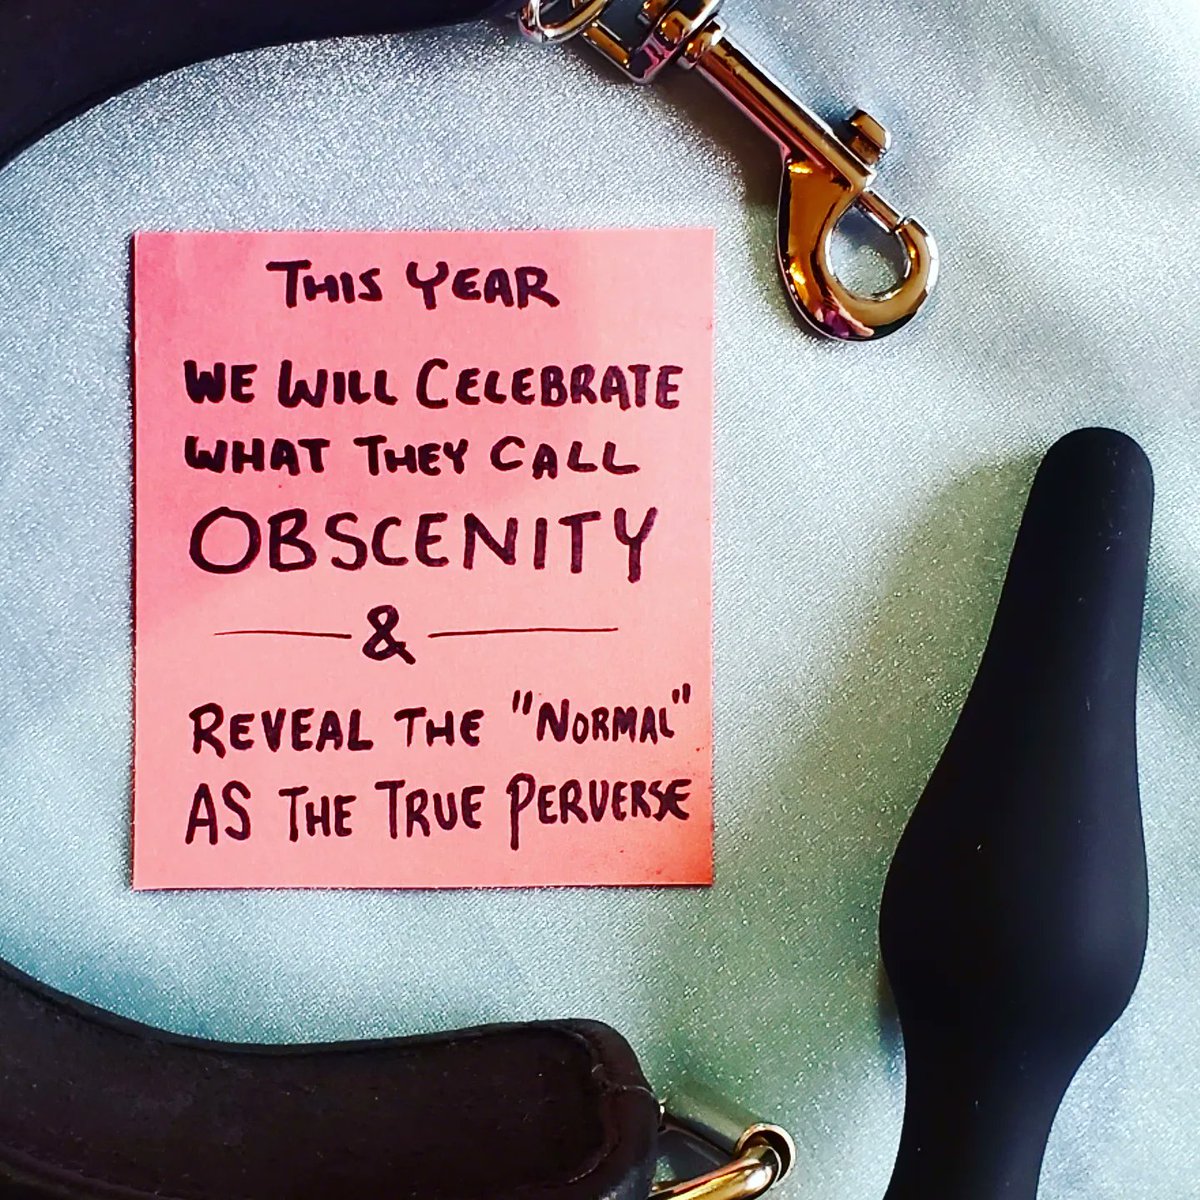 THIS YEAR
WE WILL CELEBRATE
WHAT THEY CALL
OBSCENITY
&
REVEAL THE "NORMAL"
AS THE TRUE PERVERSE